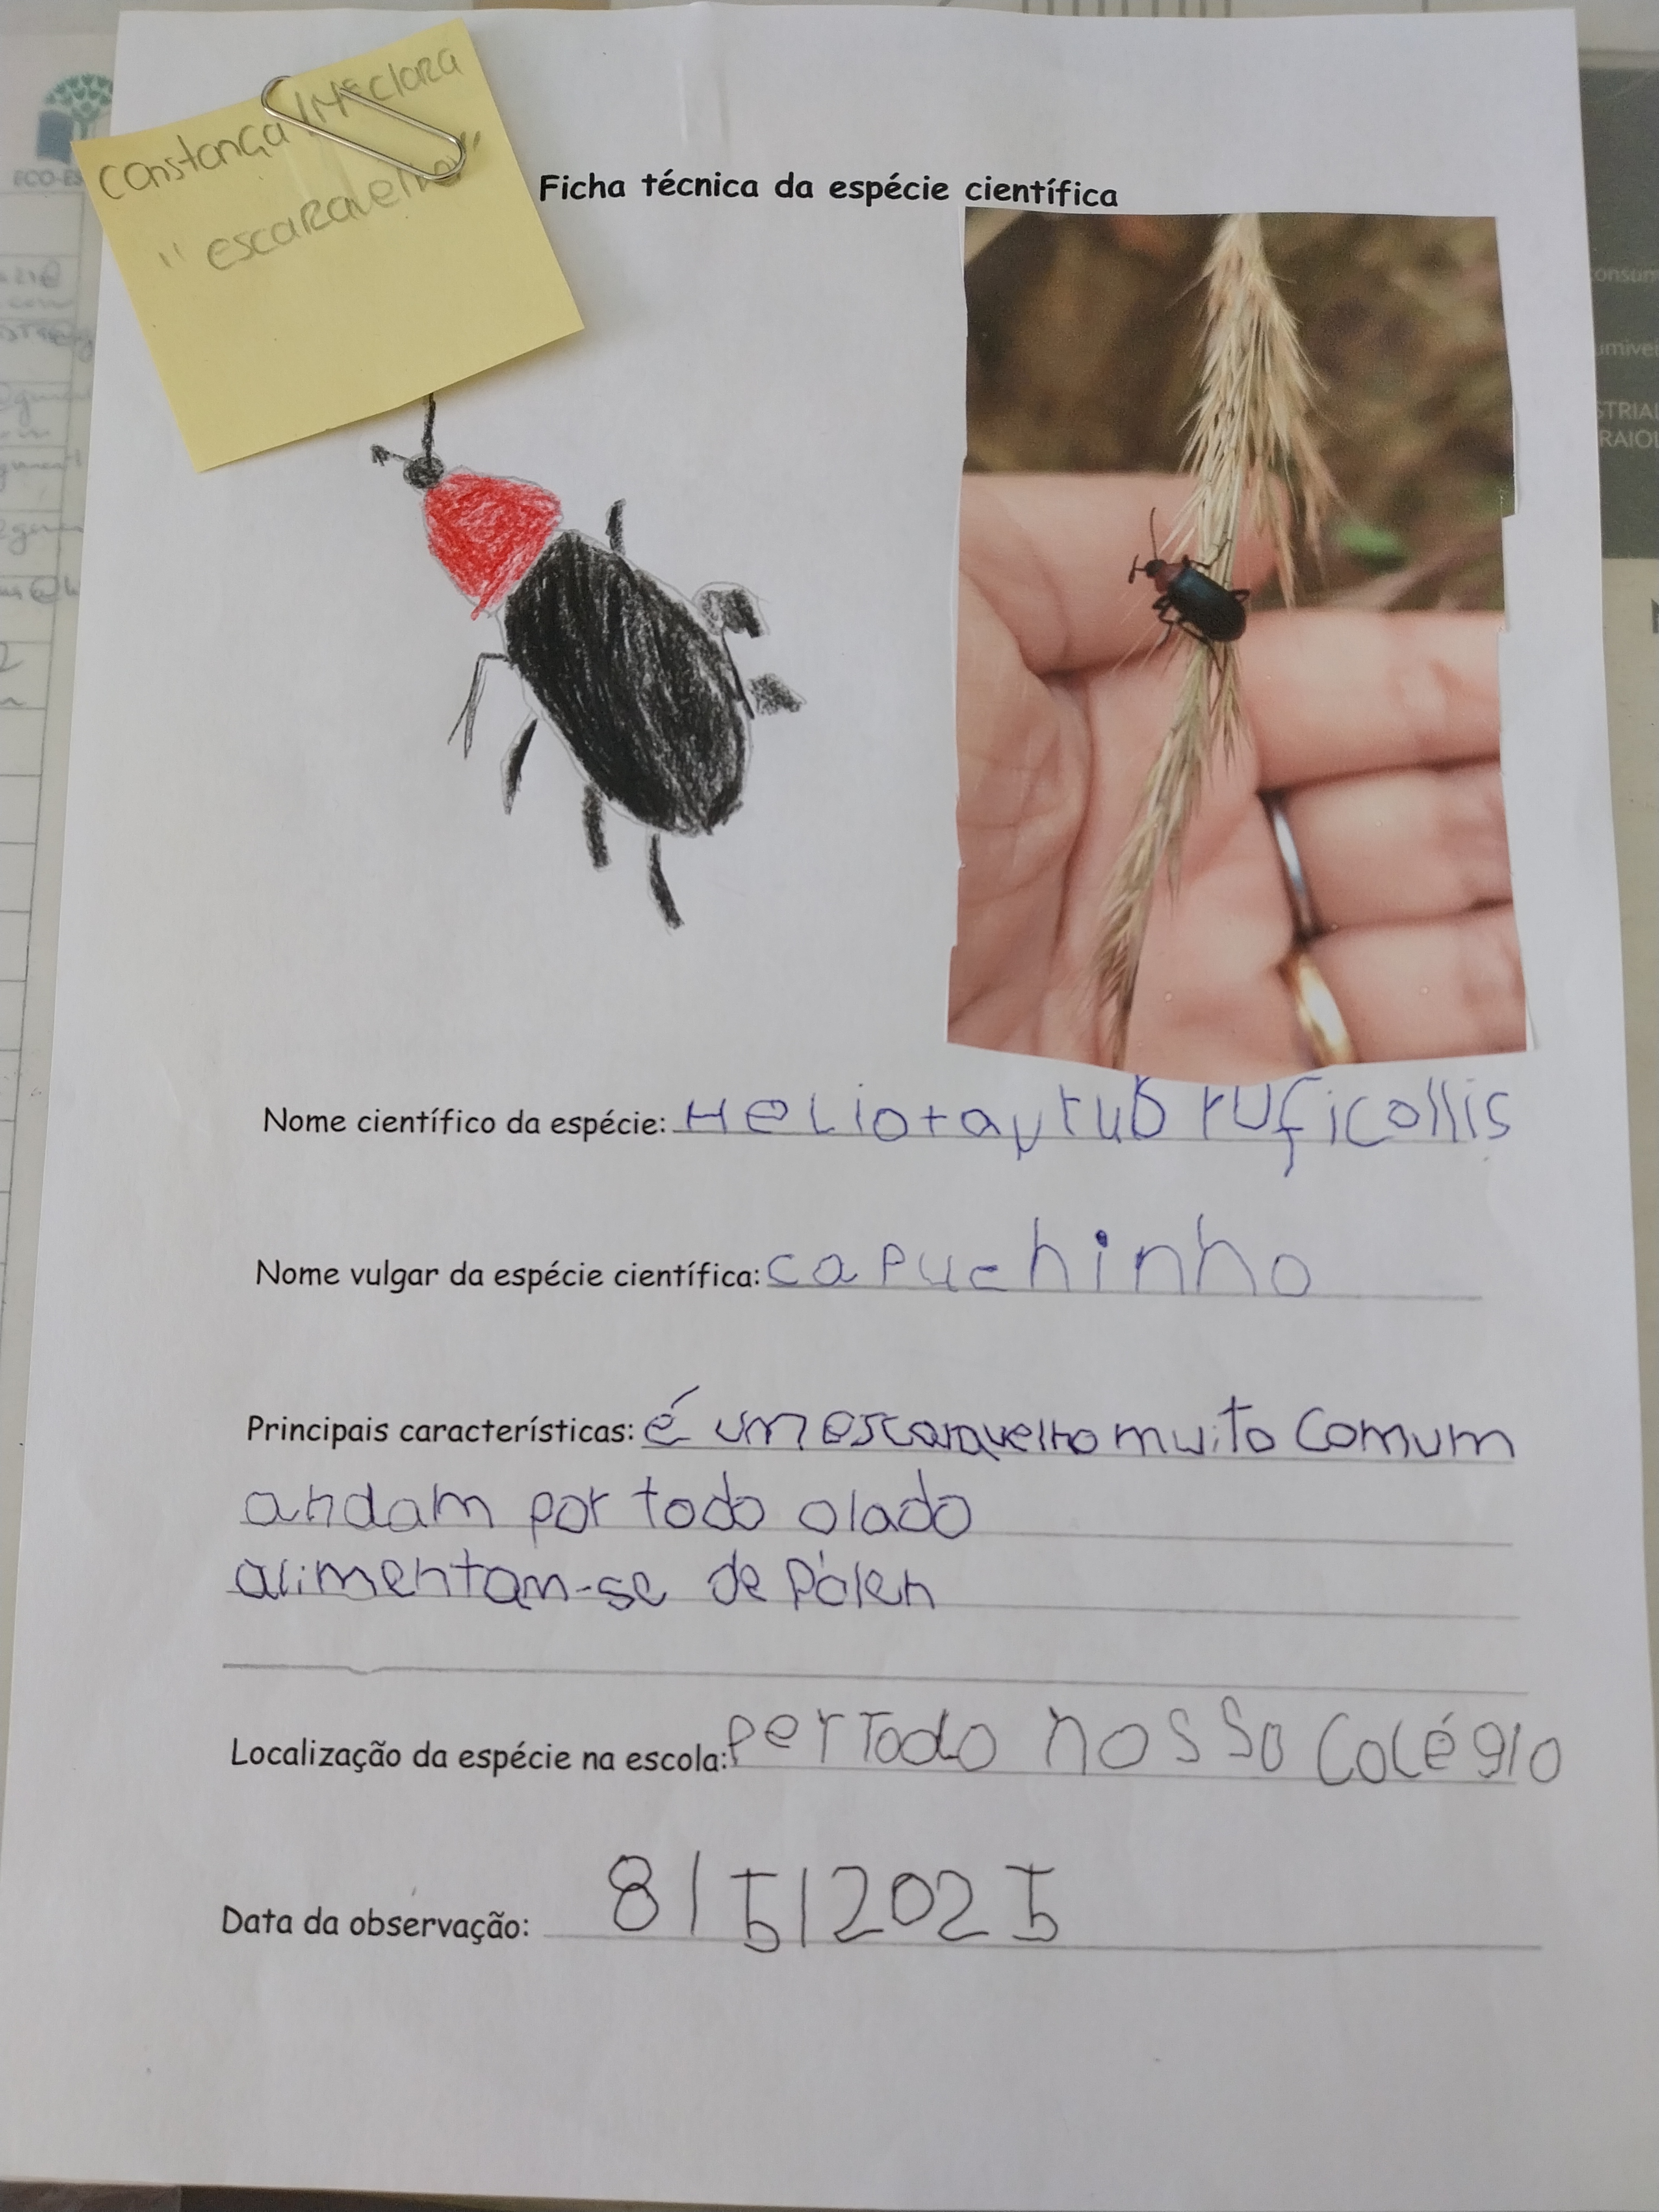 Constança / Mª Clara
"escaravelho"
ECO-ES
Ficha técnica da espécie científica
Nome científico da espécie: Heliotaurub ruficollis
Nome vulgar da espécie científica: capuchinho
Principais características: é um escaravelho muito comum
andam por todo olado
alimentam-se de Pólen
Localização da espécie na escola: per Todo nosso Colégio
Data da observação: 8/5/2025